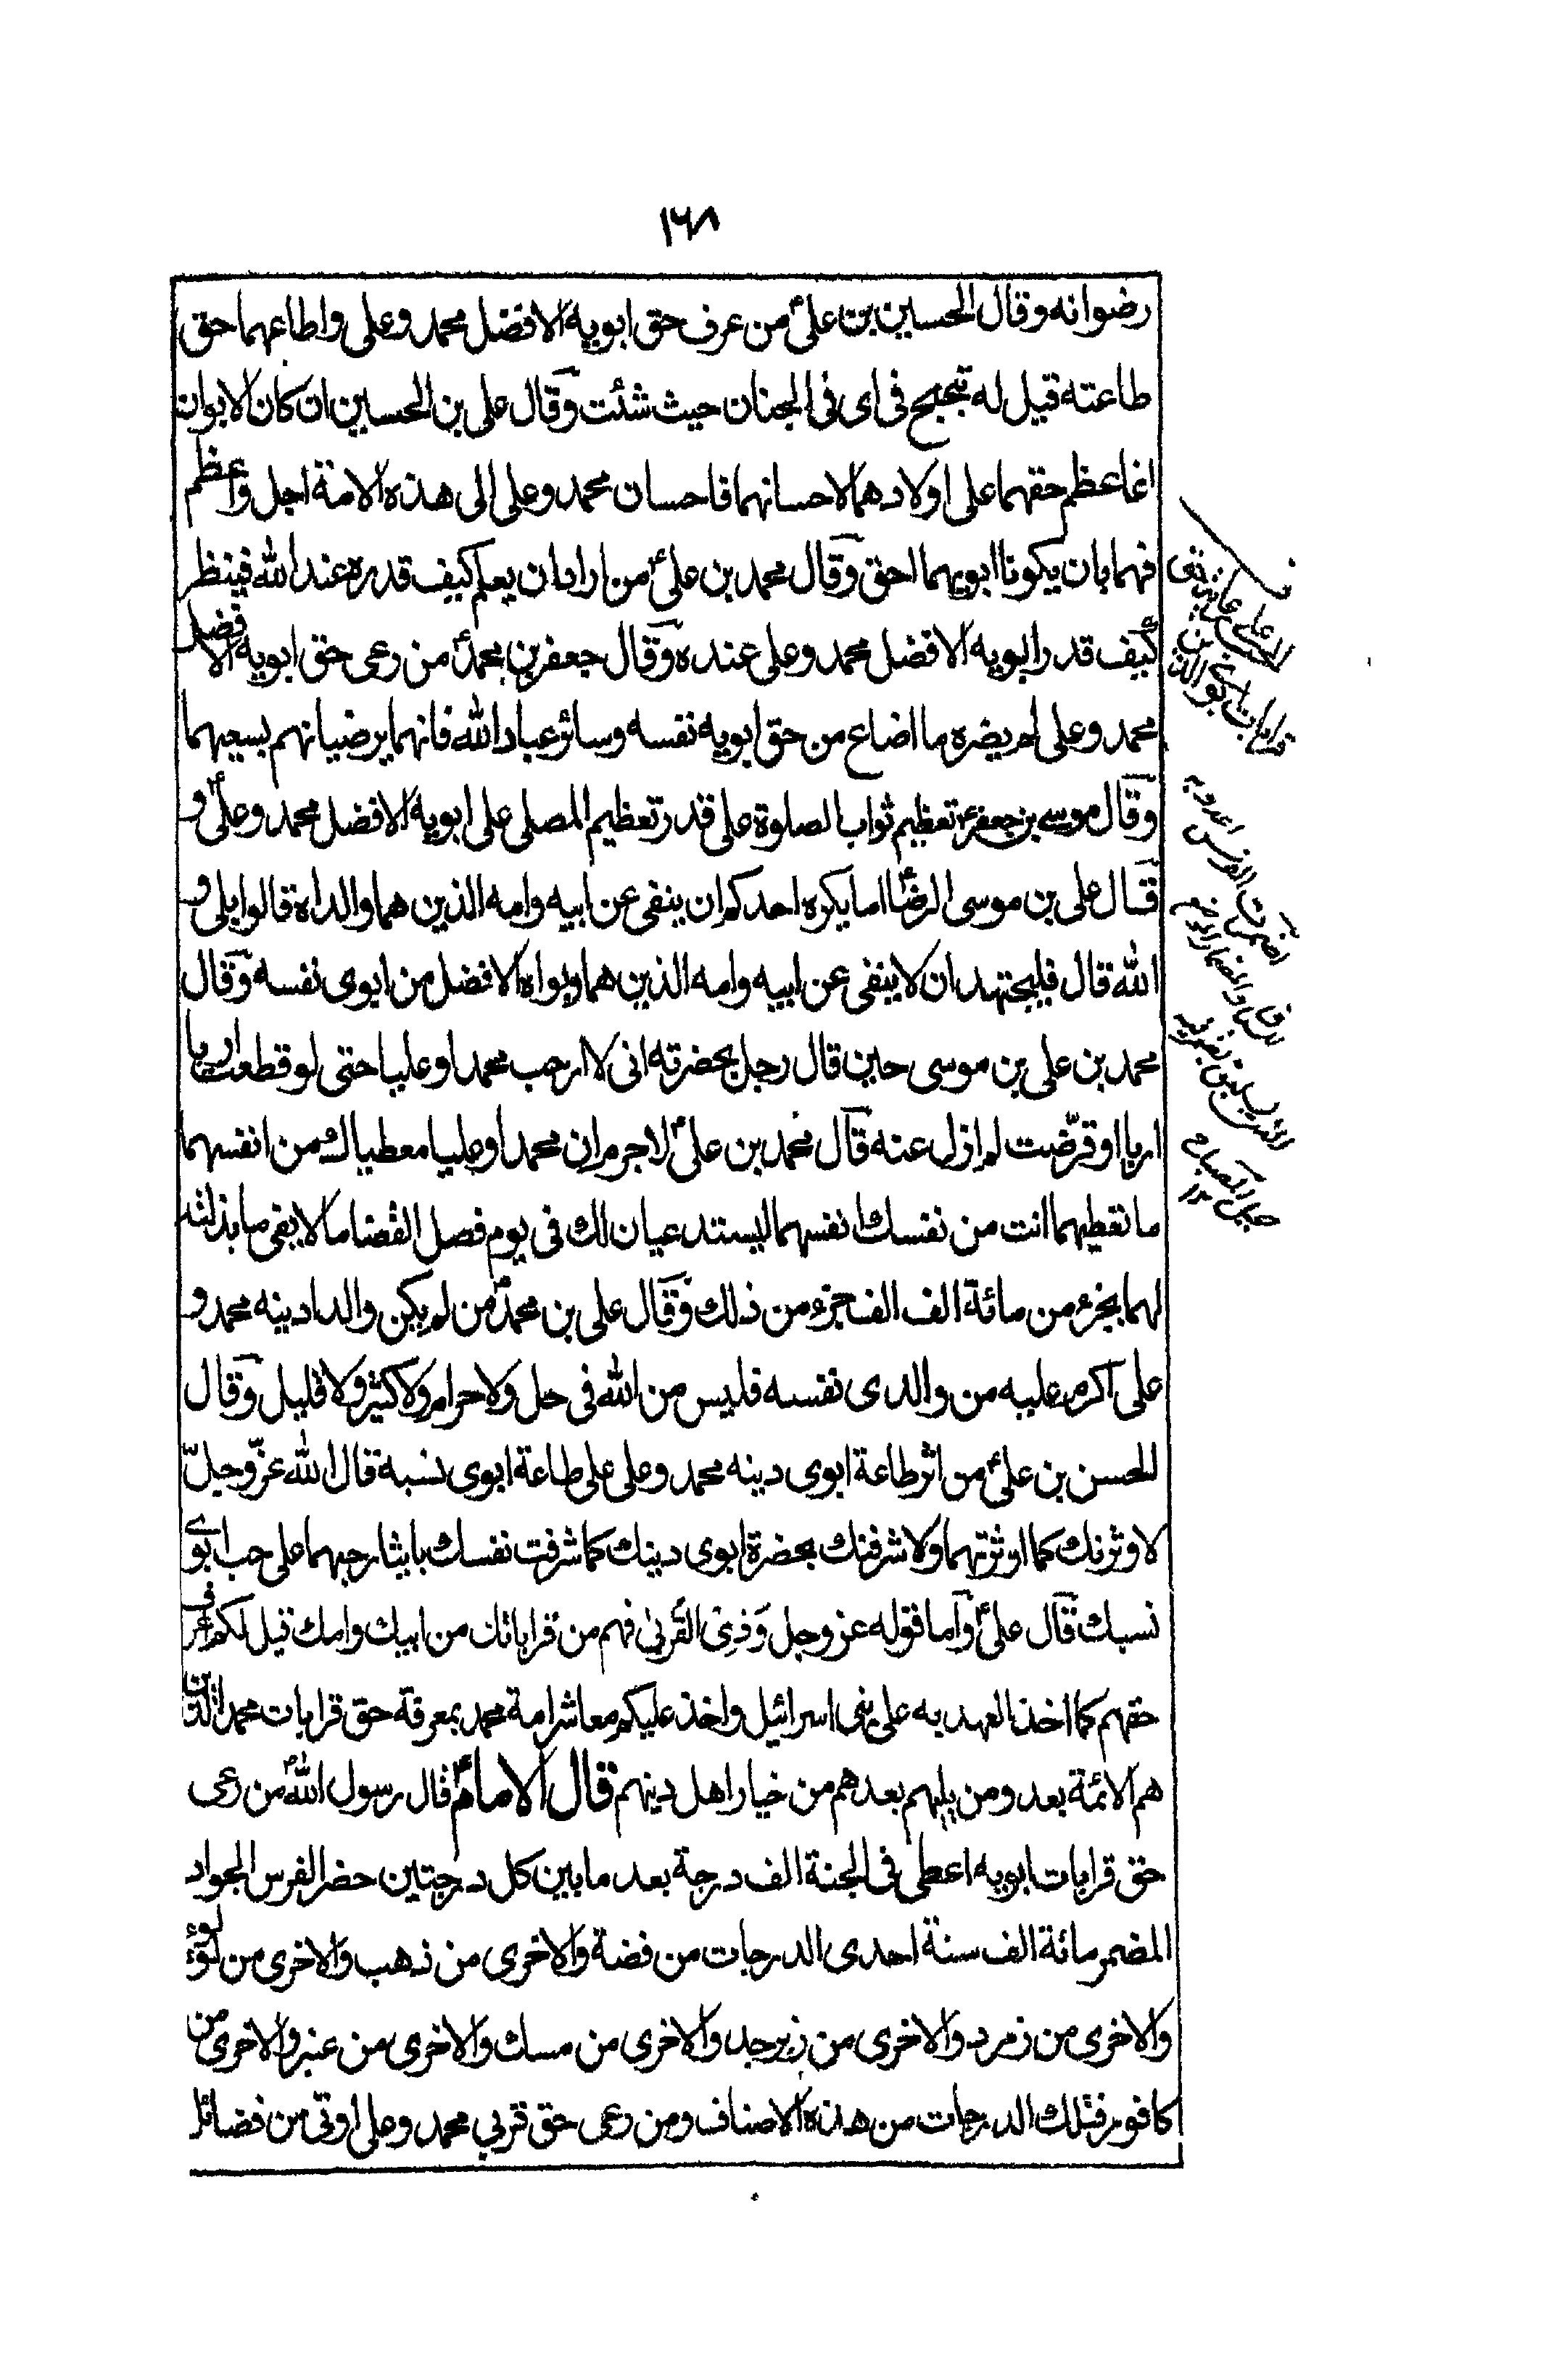 ١٦٨
رضوانه وقال الحسين بن علیؑ من عرف حق ابویه الافضل محمد وعلی واطاعهما حق
طاعته قیل له تبحبح فی ای فی الجنان حیث شئت وقال علی بن الحسین ان کان الابوان
انما عظم حقهما علی اولادهما لاحسانهما فاحسان محمد وعلی الی هذه الامة اجل واعظم
فهما بان یکونا ابویهما احق وقال محمد بن علیؑ من اراد ان یعلم کیف قدره عند الله فینظر
کیف قدر ابویه الافضل محمد وعلی عنده وقال جعفر بن محمدؑ من رعی حق ابویه الافضل
محمد وعلی لم یضره ما اضاع من حق ابویه نفسه وسائر عباد الله فانهما یرضیانهم بسعیهما
وقال موسی بن جعفرؑ تعظیم ثواب الصلوة علی قدر تعظیم المصلی علی ابویه الافضل محمد وعلیؑ و
قال علی بن موسی الرضاؑ اما یکره احدکم ان ینفی عن ابیه وامه الذین هما والداه قالوا بلی و
الله قال فلیجتهد ان لا ینفی عن ابیه وامه الذین هما ابواه الافضل من ابوی نفسه وقال
محمد بن علی بن موسی حین قال رجل بحضرته انی لا احب محمدا وعلیا حتی لو قطعت اربا
اربا او قرّضت لم ازل عنه قال محمد بن علیؑ لا جرم ان محمدا وعلیا معطیاك من انفسهما
ما تعطیهما انت من نفسك انفسهما لیستدعیان لك فی یوم فصل القضا ما لا یفی ما بذلته
لهما بجزء من مائة الف الف جزء من ذلك وقال علی بن محمدؑ من لم یکن والدا دینه محمد و
علی اکرم علیه من والدی نفسه فلیس من الله فی حل ولا حرام ولا کثیر ولا قلیل وقال
الحسن بن علیؑ من اثر طاعة ابوی دینه محمد وعلی علی طاعة ابوی نسبه قال الله عزّ وجلّ
لاوثرنك کما اوثرتهما ولاشرفنك بحضرة ابوی دینك کما شرفت نفسك بایثار حبهما علی حب ابوی
نسبك قال علیؑ واما قوله عز وجل وَذِی القُربیٰ فهم من قراباتك من ابیك وامك قیل لکم اعرف
حقهم کما اخذ العهد به علی بنی اسرائیل واخذ علیکم معاشر امة محمد بمعرفة حق قرابات محمد الذین
هم الائمة بعد ومن یلیهم بعدهم من خیار اهل دینهم قال الامامؑ قال رسول اللهؐ من رعی
حق قرابات ابویه اعطی فی الجنة الف درجة بعد ما بین کل درجتین حضر الفرس الجواد
المضمر مائة الف سنة احدی الدرجات من فضة والاخری من ذهب والاخری من لؤلؤ
والاخری من زمرد والاخری من زبرجد والاخری من مسك والاخری من عنبر والاخری من
کافور فتلك الدرجات من هذه الاصناف ومن رعی حق قربی محمد وعلی اوتی من فضائل